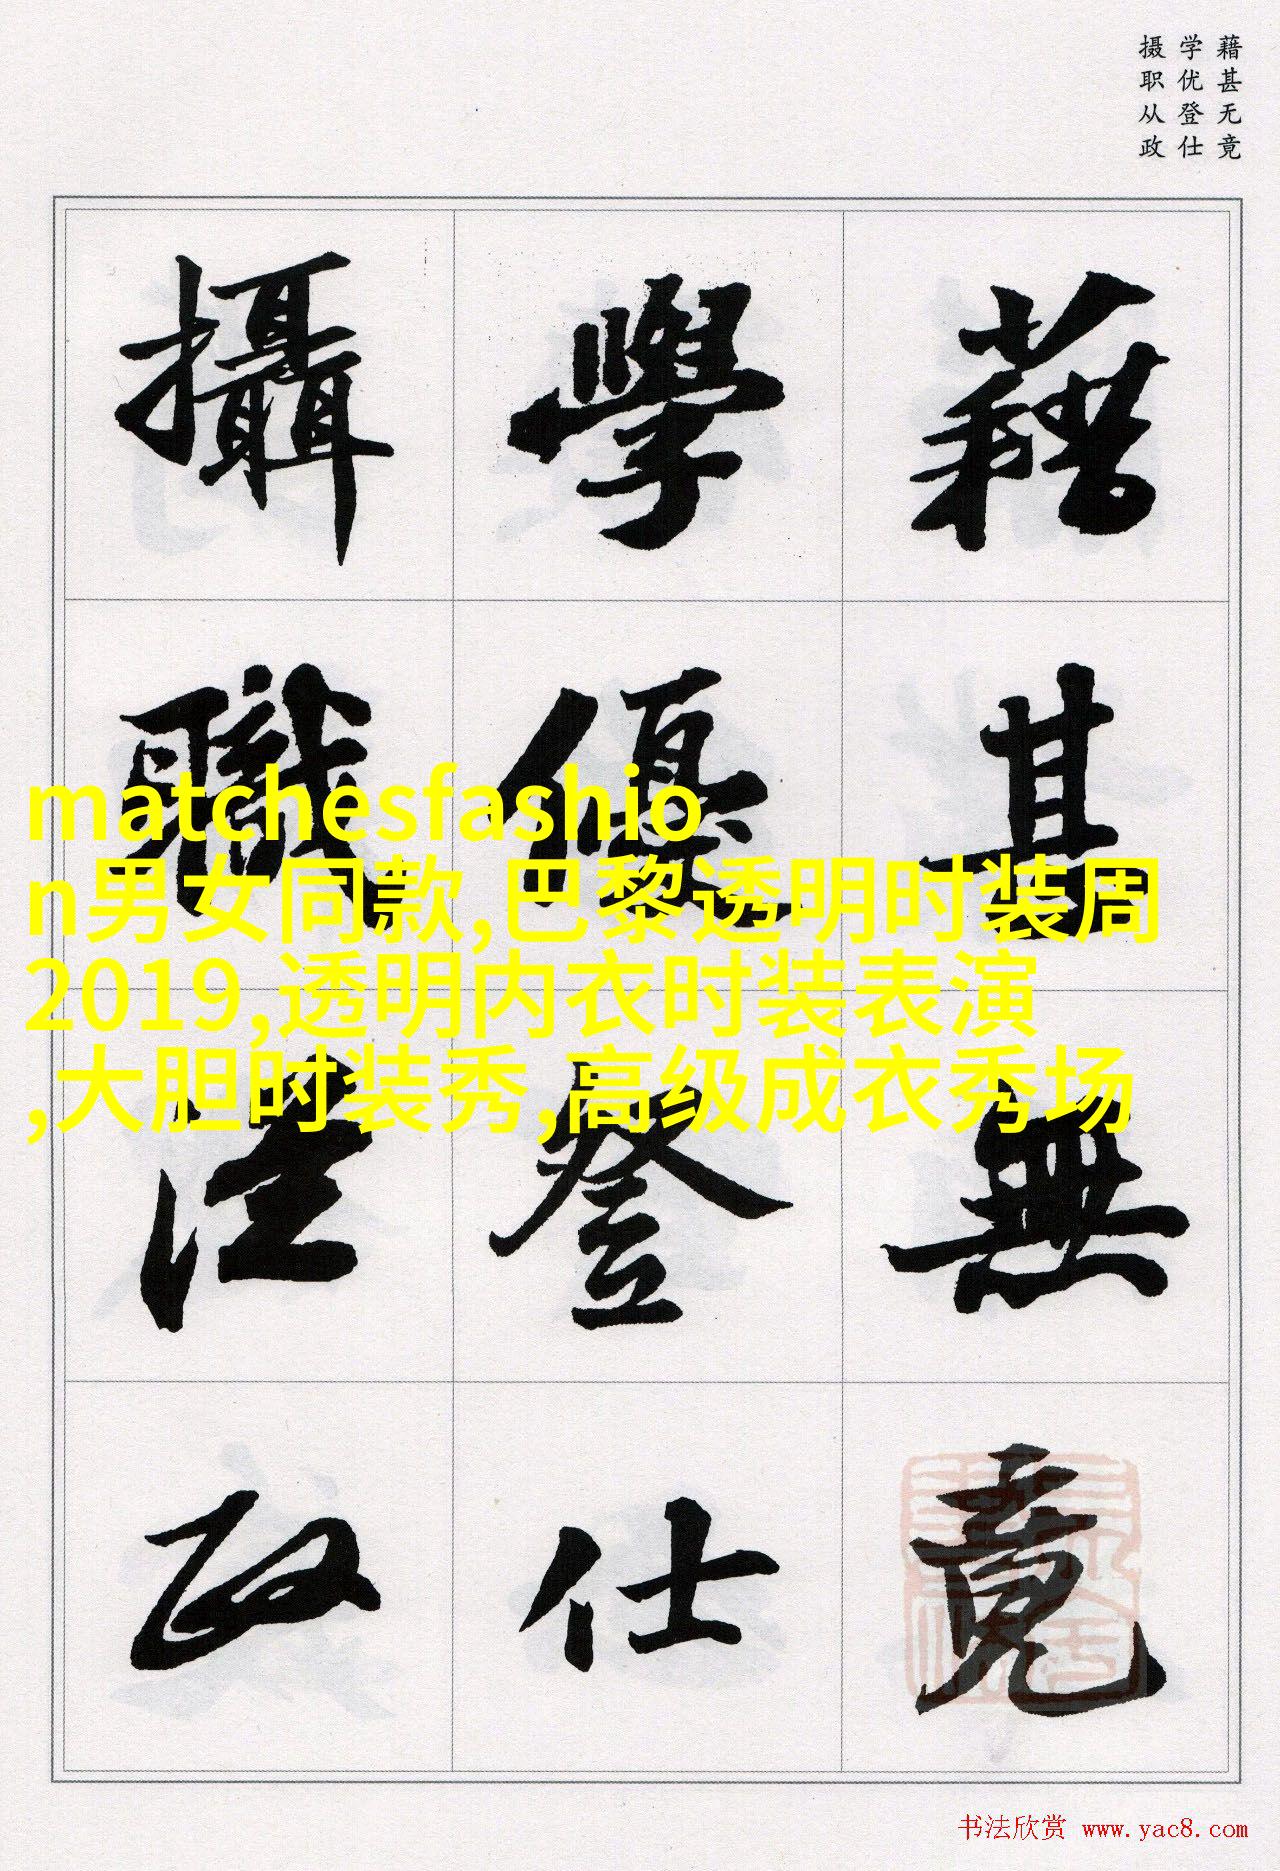 藉甚无竟
学优登仕
摄职从政
藉甚無竟
學優登仕
攝職從政
matchesfashio
n男女同款,巴黎透明时装周
2019,透明内衣时装表演
,大胆时装秀,高级成衣秀场
书法欣赏 www.yac8.com